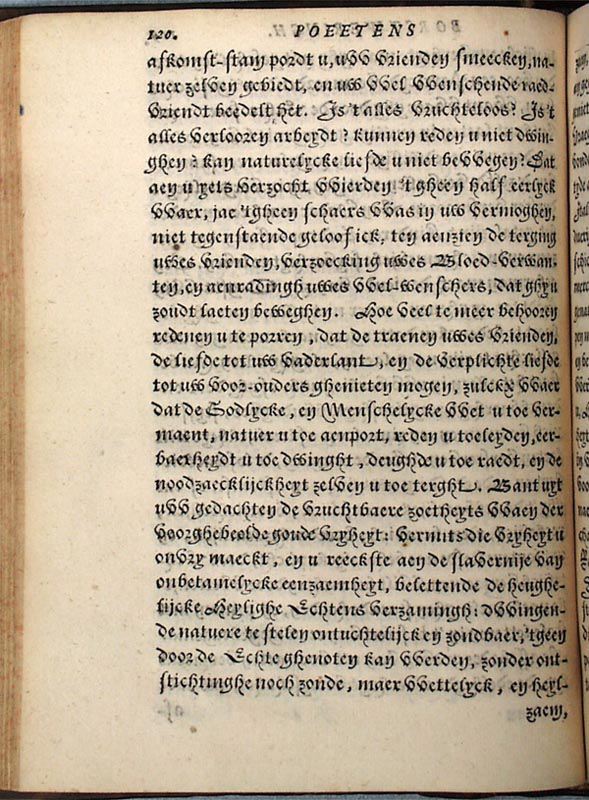 120. POEETENS
afkomst-stam pordt u, uvv vrienden smeecken, na-
tuer zelven gebiedt, en uw vvel vvenschende raed-
vriendt beedelt het. Is't alles vruchteloos? Is't
alles verlooren arbeydt? kunnen reden u niet dwin-
ghen? kan naturelycke liefde u niet bevvegen? Dat
aen u yets verzocht vvierden 'tgheen half eerlyck
vvaer, jae 'tgheen schaers vvas in uw vermoghen,
niet tegenstaende geloof ick, ten aenzien de terging
uwes vrienden, verzoecking uwes Bloed-verwan-
ten, en aenradingh uwes vvel-wenschers, dat ghy u
zoudt laeten beweghen. Hoe veel te meer behooren
redenen u te porren, dat de traenen uwes vrienden,
de liefde tot uw vaderlant, en de verplichte liefde
tot uw voor-ouders ghenieten mogen, zulckx vvaer
dat de Godlycke, en Menschelycke vvet u toe ver-
maent, natuer u toe aenport, reden u toeleyden, eer-
baerheydt u toe dwinght, deughde u toe raedt, en de
noodzaecklijckheyt zelven u toe terght. Bant uyt
uvv gedachten de vruchtbaere zoetheyts vvaen der
voorghebeelde goude vryheyt: vermits die vryheyt u
onvry maeckt, en u reeckste aen de slavernije van
onbetamelycke eenzaemheyt, belettende de heughe-
lijcke Heylighe Echtens verzamingh: dvvingen-
de natuere te stelen ontuchtelijck en zondbaer, 'tgeen
door de Echteghenoten kan vverden, zonder ont-
stichtinghe noch zonde, maer vvettelyck, en heyl-
zaem,